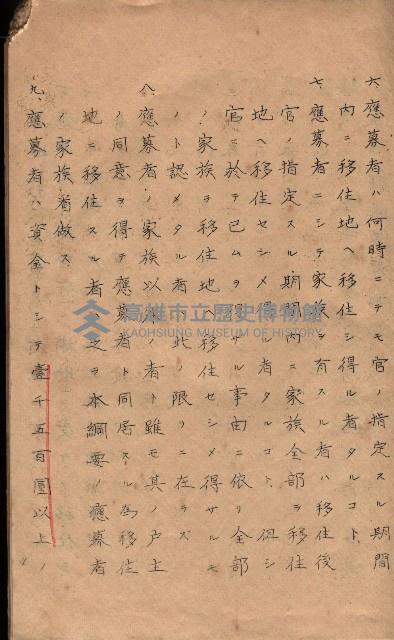 六、應募者ハ何時ニテモ官ノ指定スル期間
内ニ移住地ヘ移住シ得ル者タルコト
七、應募者ニシテ家族ヲ有スル者ハ移住後
官ノ指定スル期間内ニ家族全部ヲ移住
地ヘ移住セシメ得ル者タルコト、但シ
官ニ於テ已ムヲ得サル事由ニ依リ全部
ノ家族ヲ移住地ニ移住セシメ得サルモ
ノト認メタル者ハ此ノ限リニ在ラズ
八、應募者ノ家族以外ノ者ト雖モ其ノ戸主
ノ同意ヲ得テ應募者ト同居スル為移住
地ニ移住スル者ハ之ヲ本綱要ノ應募者
ノ家族ト看做ス
九、應募者ハ資金トシテ壹千五百圓以上ノ
高雄市立歷史博物館
KAOHSIUNG MUSEUM OF HISTORY